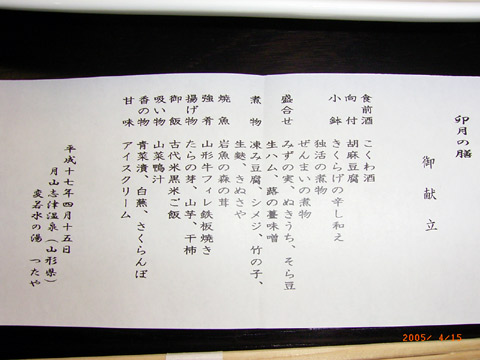 卯月の膳
御献立
食前酒 こくわ酒
向付 胡麻豆腐
小鉢 きくらげの辛し和え
独活の煮物
ぜんまいの煮物
盛合せ みずの実、ぬきうち、そら豆
生ハム、蕗の薹味噌
煮物 凍み豆腐、シメジ、竹の子、
生麩、きぬさや
焼魚 岩魚の森の茸
強肴 山形牛フィレ鉄板焼き
揚げ物 たらの芽、山芋、干柿
御飯 古代米黒米ご飯
吸い物 山菜鴨汁
香の物 青菜漬、白蕪、さくらんぼ
甘味 アイスクリーム
平成十七年四月十五日
月山志津温泉(山形県)
変若水の湯 つたや
2005/ 4/15